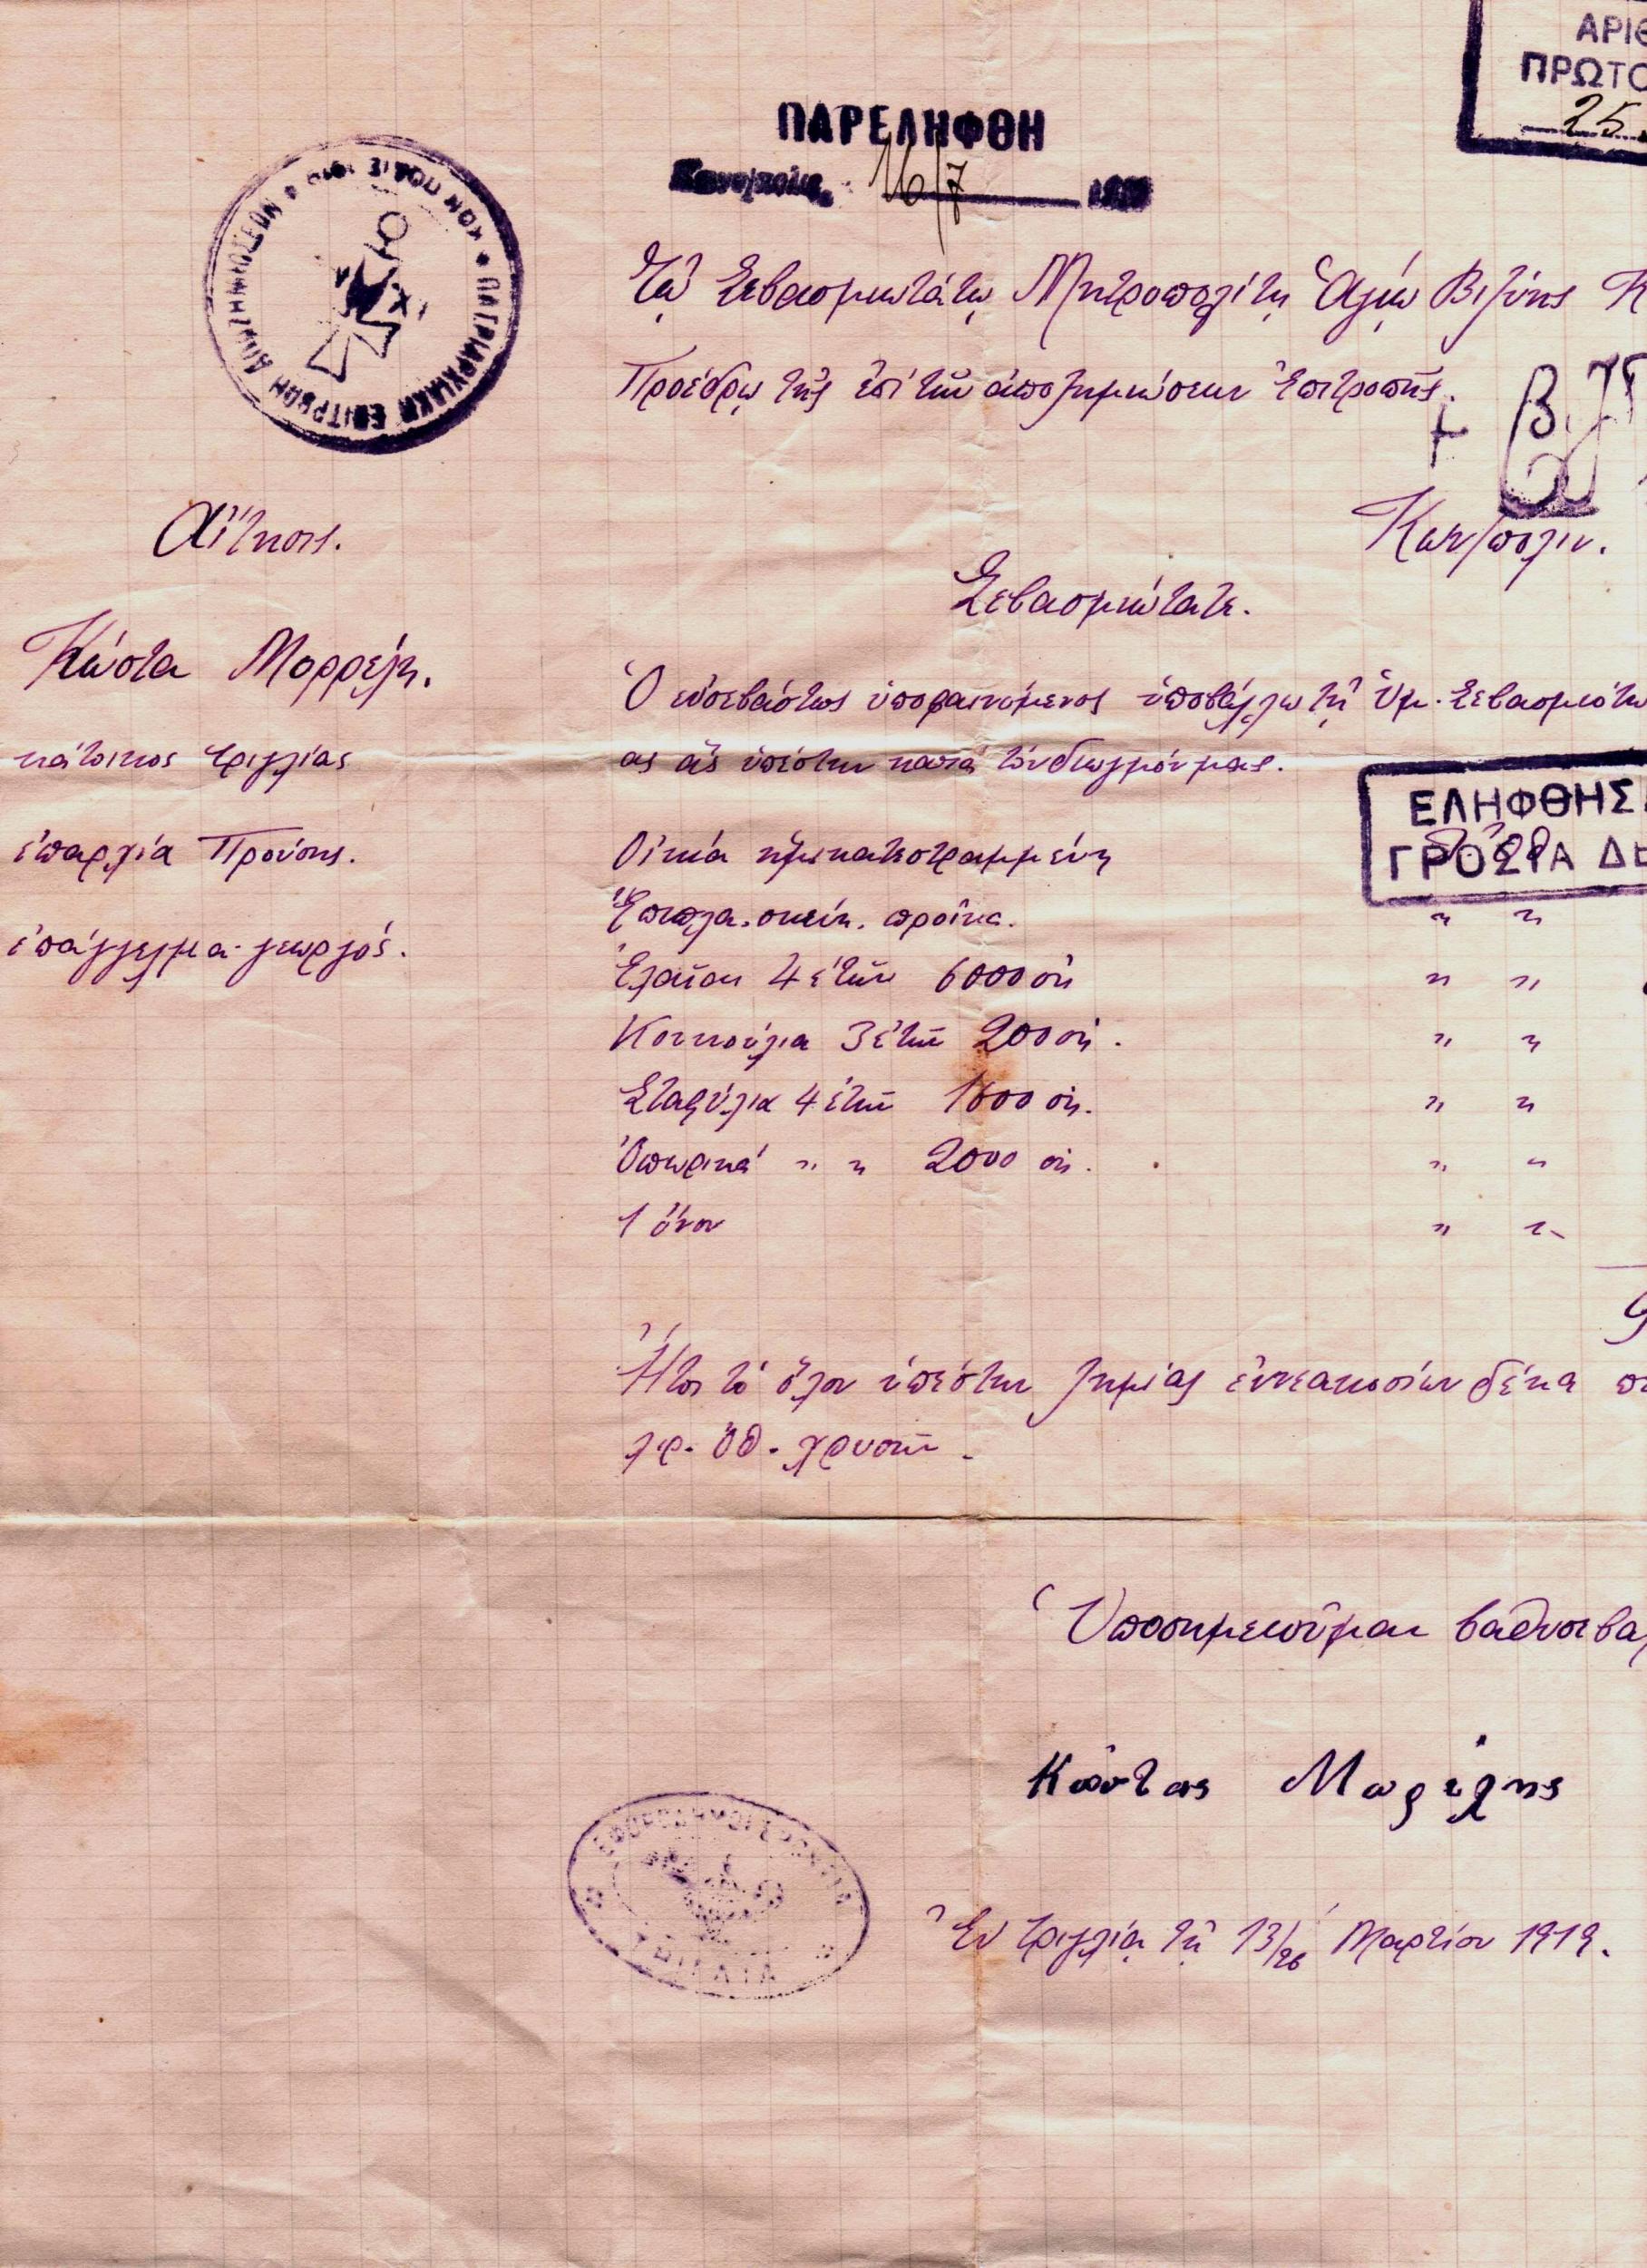 ΑΡΙΘ
ΠΡΩΤΟ
25
ΠΑΡΕΛΗΦΘΗ
16/7
ΠΑΤΡΙΑΡΧΙΚΗ ΕΠΙΤΡΟΠΗ ΑΠΟΖΗΜΙΩΣΕΩΝ
Τῷ Σεβασμιωτάτῳ Μητροπολίτῃ Ἁγίῳ Βιζύης Κ
Προέδρῳ τῆς ἐπὶ τῶν ἀποζημιώσεων Ἐπιτροπῆς.
Κων/πολιν.
Αἴτησις.
Σεβασμιώτατε.
Κώστα Μορρέλη.
κάτοικος Τριγλίας
ἐπαρχία Προύσης.
ἐπάγγελμα γεωργός.
Ὁ εὐσεβάστως ὑποφαινόμενος ὑποβάλλω τῇ Ὑμ. Σεβασμιότη
ας ἃς ὑπέστην κατά τόν διωγμόν μας.
ΕΛΗΦΘΗΣ
ΓΡΟΣΙΑ ΔΕ
Οἰκία ἡμικατεστραμμένη
Ἔπιπλα. σκεύη. προῖκα. " "
Ἐλαῖαι 4 ἐτῶν 6000 ὀκ " "
Κουκούλια 3 ἐτῶν 200 ὀκ. " "
Σταφύλια 4 ἐτῶν 1600 ὀκ. " "
Ὀπωρικά " " 2000 ὀκ. " "
1 ὄνον " "
9
Ἤτοι τό ὅλον ὑπέστην ζημίας ἐννεακοσίων δέκα πε
λιρ. Ὀθ. χρυσῶν.
Ὑποσημειοῦμαι βαθυσεβα
Κώστας Μωρέλης
ΕΦΟΡΟΔΗΜΟΓΕΡΟΝΤΙΑ
ΤΡΙΓΛΙΑ
Ἐν Τριγλίᾳ τῇ 13/26 Μαρτίου 1919.